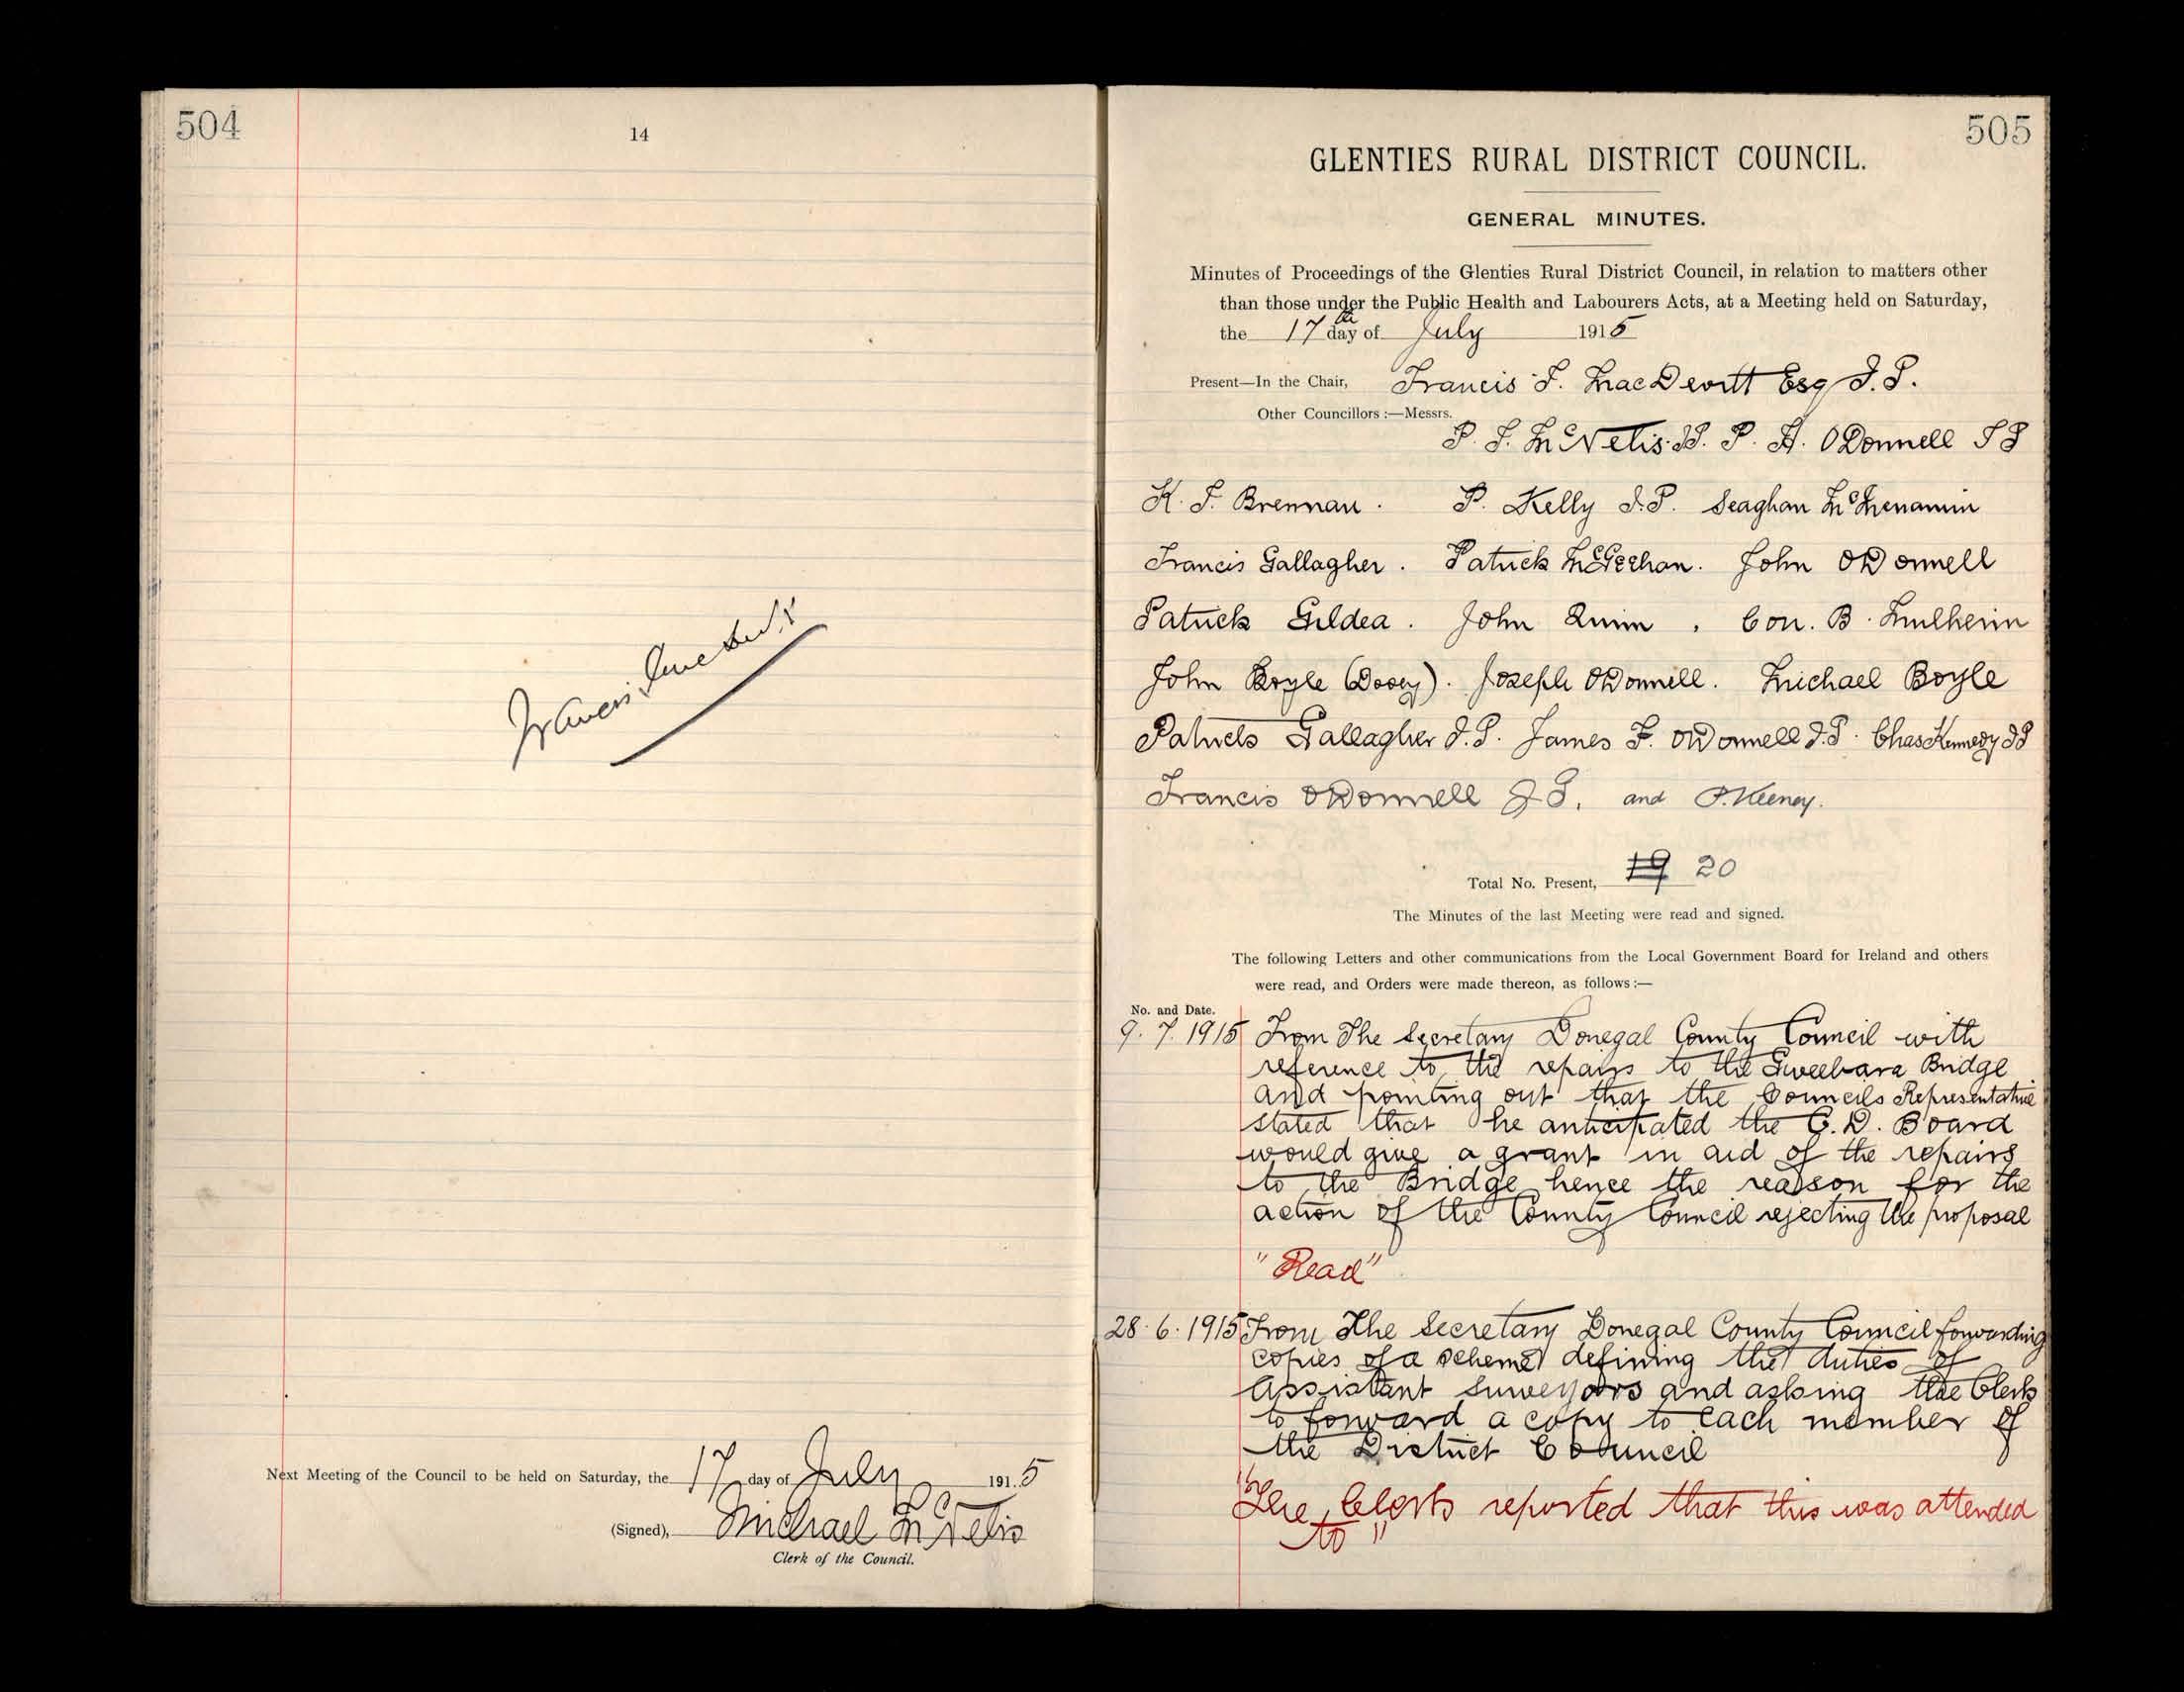 504
14
Francis
Next Meeting of the Council to be held on Saturday, the 17 day of July 1915
(Signed), Michael McNelis
Clerk of the Council.
505
GLENTIES RURAL DISTRICT COUNCIL.
GENERAL MINUTES.
Minutes of Proceedings of the Glenties Rural District Council, in relation to matters other
than those under the Public Health and Labourers Acts, at a Meeting held on Saturday,
the 17th day of July 1915
Present—In the Chair, Francis F. MacDevitt Esq J.P.
Other Councillors :—Messrs.
P. J. McNelis J.P. P. H. O'Donnell JP
K. F. Brennan. P. Kelly J.P. Seaghan McMenamin
Francis Gallagher. Patrick McGeehan. John O'Donnell
Patrick Gildea. John Quinn, Con. B. Mulhern
John Boyle (Dooey). Joseph O'Donnell. Michael Boyle
Patrick Gallagher J.P. James F. O'Donnell J.P. Chas Kennedy JP
Francis O'Donnell J.P. and P. Keeney.
Total No. Present, 19 20
The Minutes of the last Meeting were read and signed.
The following Letters and other communications from the Local Government Board for Ireland and others
were read, and Orders were made thereon, as follows :—
No. and Date.
9. 7. 1915 From The Secretary Donegal County Council with
reference to the repairs to the Gweebara Bridge
and pointing out that the Councils Representative
stated that he anticipated the C. D. Board
would give a grant in aid of the repairs
to the Bridge hence the reason for the
action of the County Council rejecting the proposal
"Read"
28. 6. 1915 From The Secretary Donegal County Council forwarding
copies of a scheme defining the duties of
Assistant Surveyors and asking the Clerk
to forward a copy to each member of
the District Council
"The Clerk reported that this was attended
to"